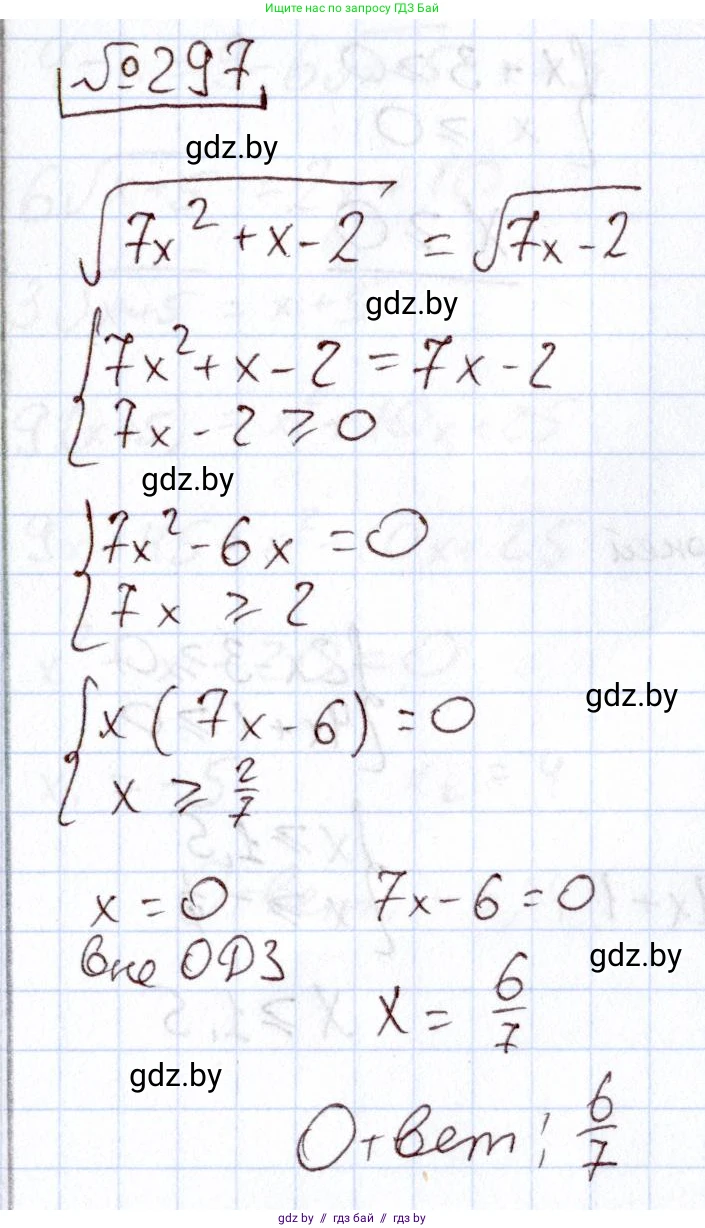 Ищите нас по запросу ГДЗ Бай
№297
gdz.by
√(7x² + x - 2) = √(7x - 2)
gdz.by
{ 7x² + x - 2 = 7x - 2
7x - 2 ⩾ 0
gdz.by
{ 7x² - 6x = 0
7x ⩾ 2
gdz.by
{ x(7x - 6) = 0
x ⩾ 2/7
x = 0 7x - 6 = 0
вне ОДЗ
gdz.by
x = 6/7
gdz.by
Ответ: 6/7
gdz.by // гдз бай // gdz.by